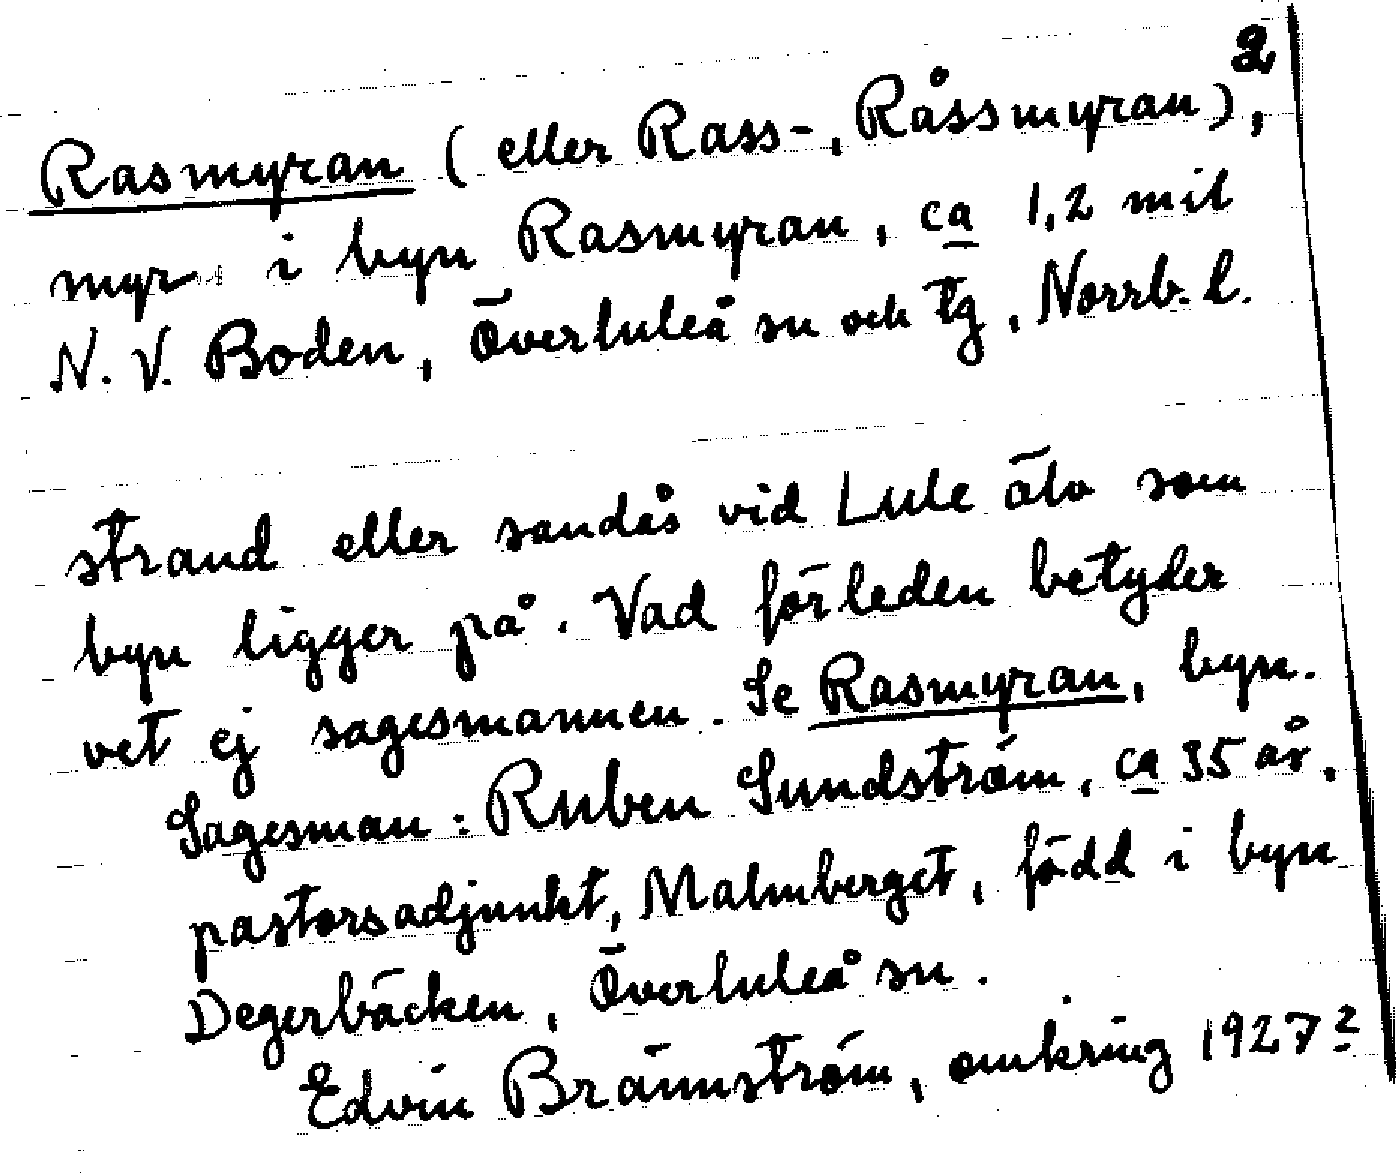 2
Rasmyran (eller Rass-, Råssmyran),
myr i byn Rasmyran, ca 1,2 mil
N. V. Boden, Överluleå sn och tg, Norrb. l.
strand eller sandås vid Lule älv som
byn ligger på. Vad förleden betyder
vet ej sagesmannen. Se Rasmyran, byn.
Sagesman: Ruben Sundström, ca 35 år,
pastorsadjunkt, Malmberget, född i byn
Degerbäcken, Överluleå sn.
Edvin Brännström, omkring 1927?